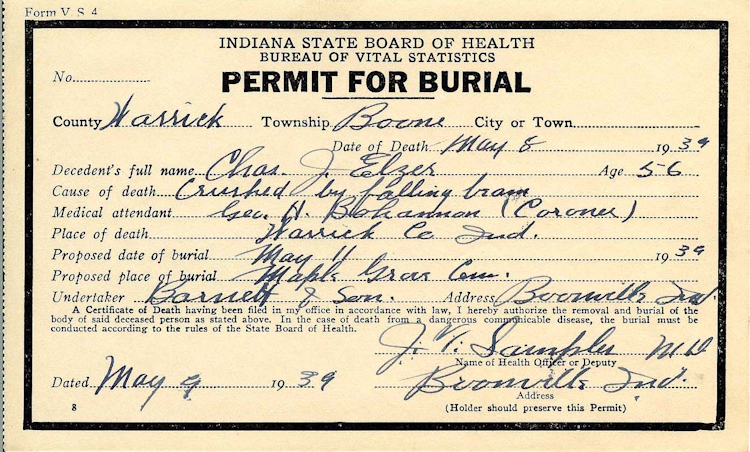 Form V. S. 4
INDIANA STATE BOARD OF HEALTH
BUREAU OF VITAL STATISTICS
No.
PERMIT FOR BURIAL
County Warrick Township Boone City or Town
Date of Death May 8 1939
Decedent's full name Chas. J. Elzer Age 56
Cause of death Crushed by falling beam
Medical attendant Geo. H. Bohannon (Coroner)
Place of death Warrick Co Ind.
Proposed date of burial May 11 1939
Proposed place of burial Maple Grove Cem.
Undertaker Barnett & Son. Address Boonville Ind.
A Certificate of Death having been filed in my office in accordance with law, I hereby authorize the removal and burial of the
body of said deceased person as stated above. In the case of death from a dangerous communicable disease, the burial must be
conducted according to the rules of the State Board of Health.
J. V. Sampler MD
Name of Health Officer or Deputy
Dated May 9 1939 Boonville Ind.
Address
8 (Holder should preserve this Permit)